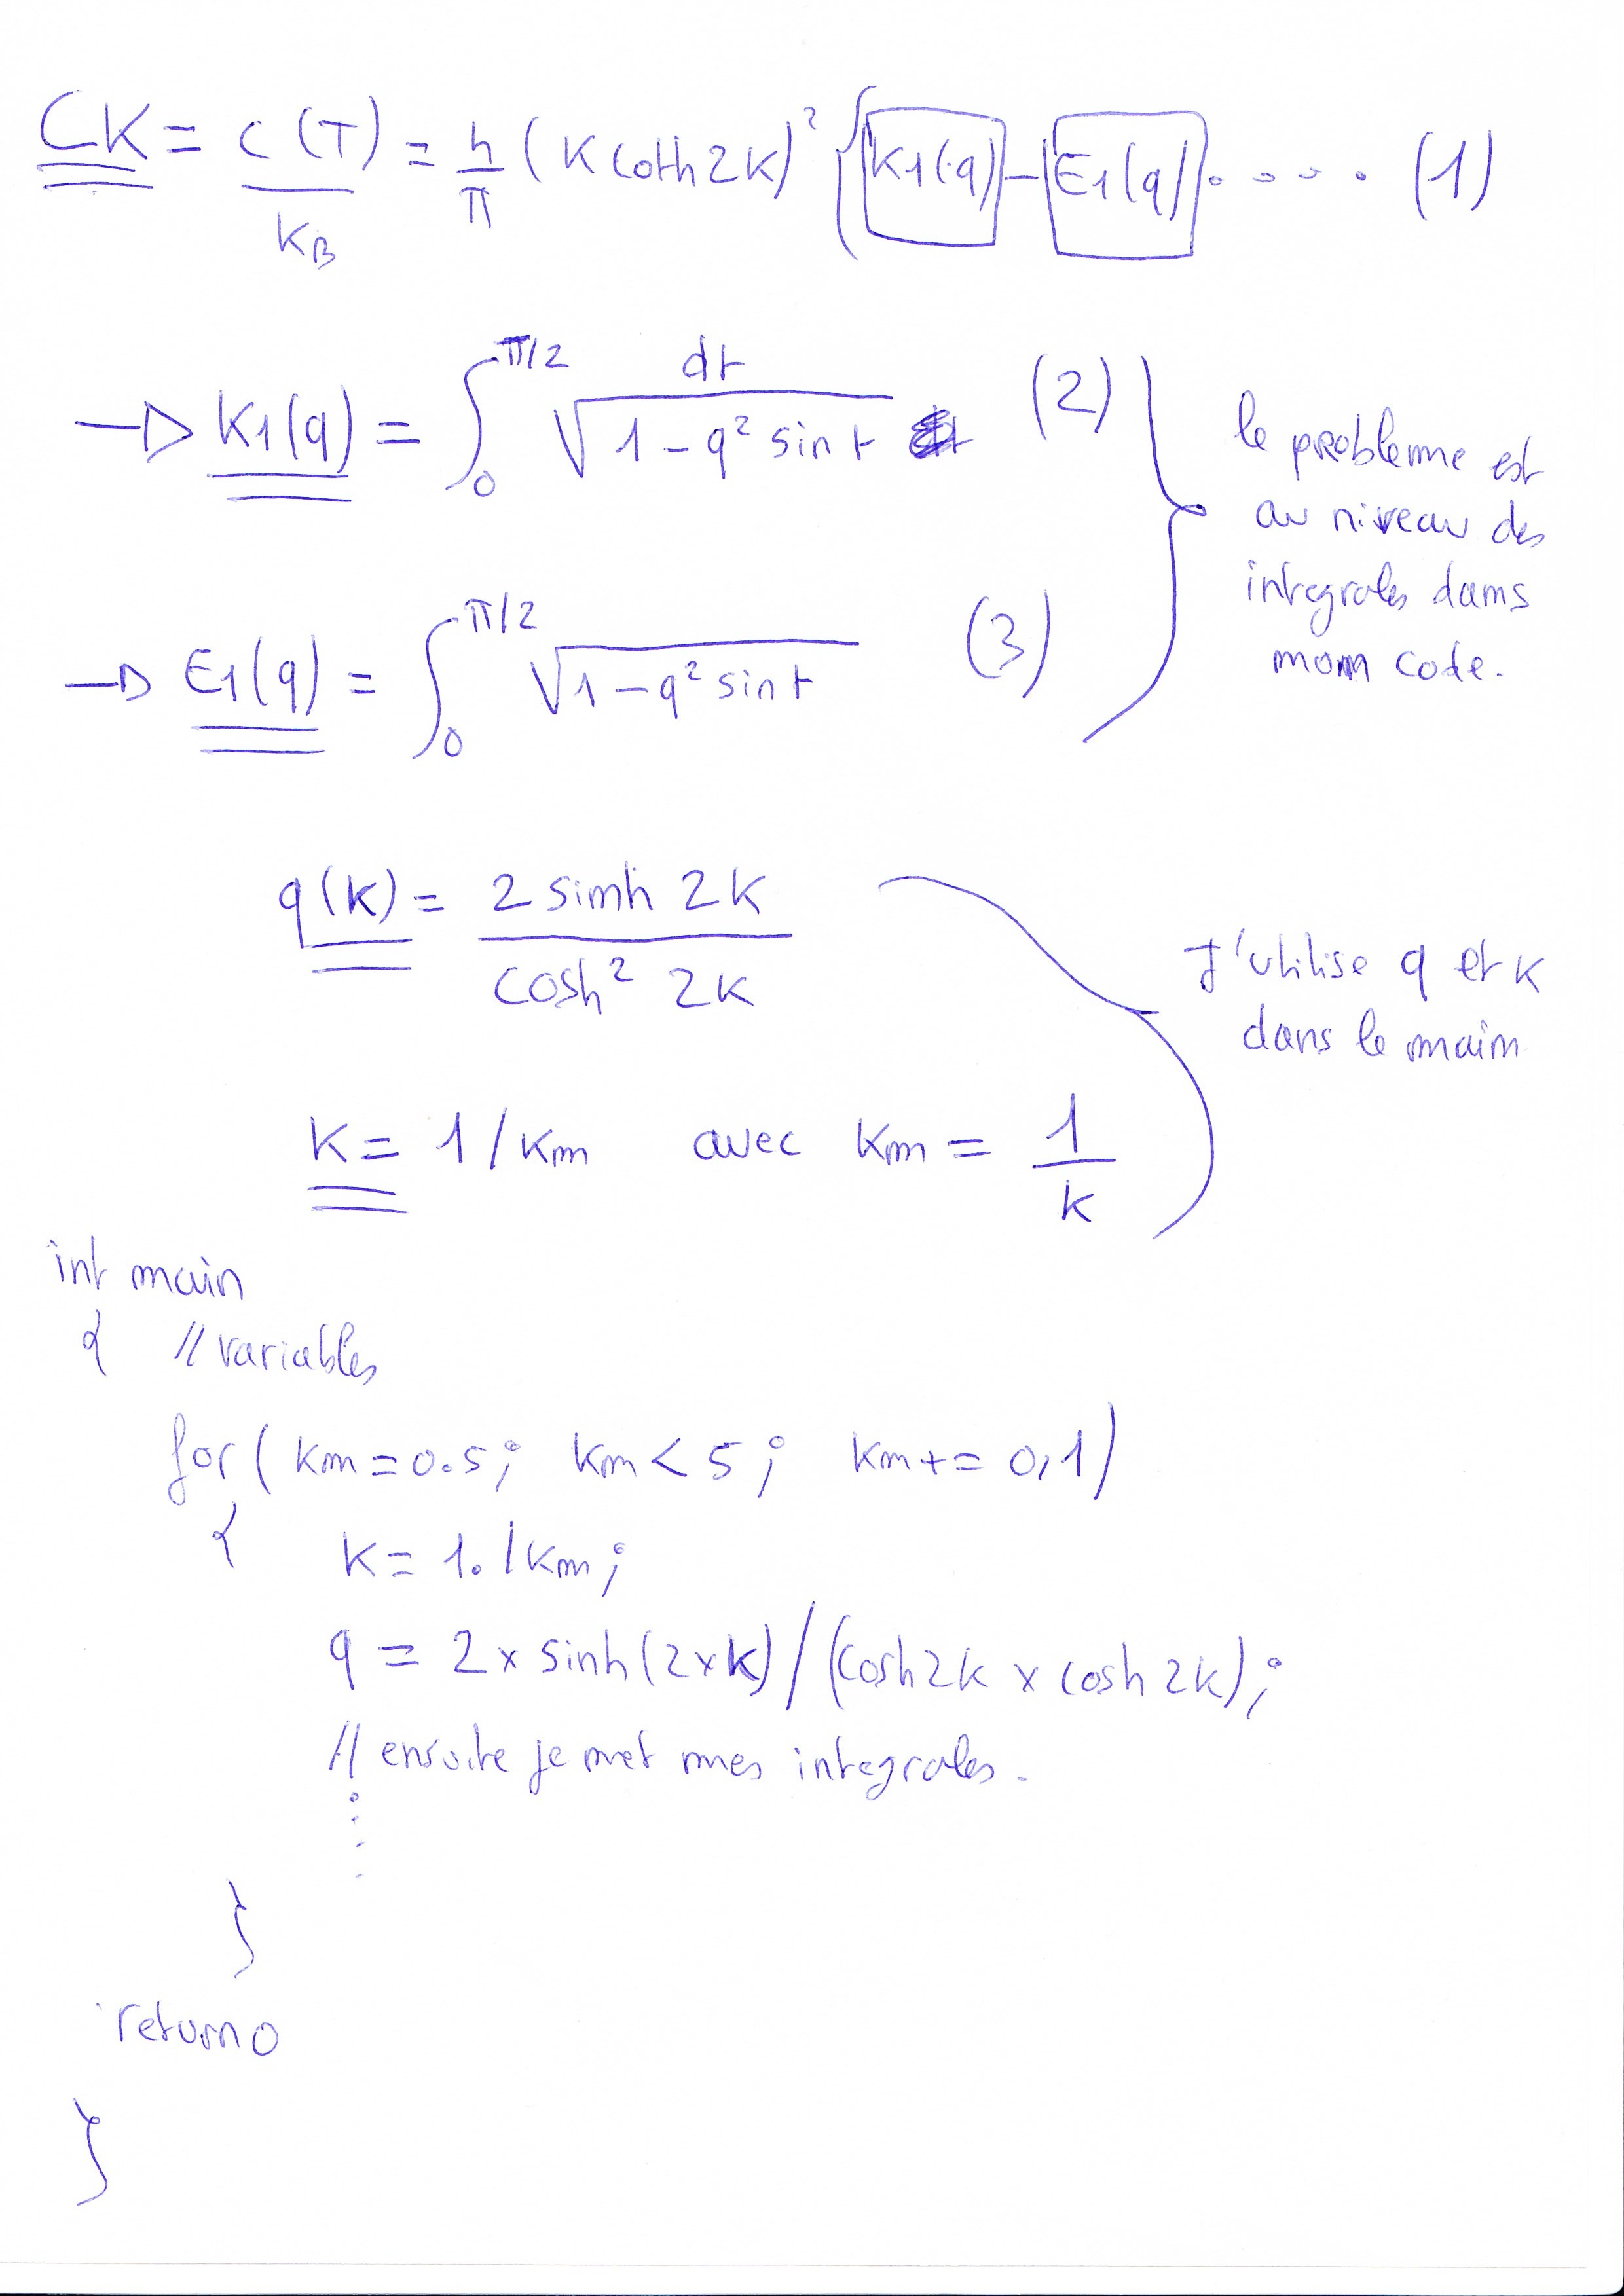 CK = C(T)/K_B = 4/π (K coth 2K)² { K1(q) - E1(q) . . . . . (1)
→ K1(q) = ∫_0^{π/2} dt / √(1 - q² sin t) (2)
→ E1(q) = ∫_0^{π/2} √(1 - q² sin t) (3)
le probleme est
au niveau des
integrales dans
mon code.
q(K) = 2 sinh 2K / cosh² 2K
J'utilise q et K
dans le main
K = 1/Km avec Km = 1/K
int main
{ // variables
for ( Km = 0.5; Km < 5; Km += 0,1)
{ K = 1. / Km;
q = 2 x sinh(2xK) / (cosh 2K x cosh 2K);
// ensuite je met mes integrales.
}
return 0
}